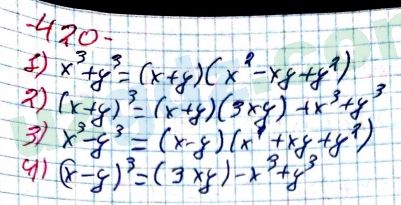 -420-
1) x³+y³=(x+y)(x²-xy+y²)
2) (x+y)³=(x+y)(3xy)+x³+y³
3) x³-y³=(x-y)(x²+xy+y²)
4) (x-y)³=(3xy)-x³+y³